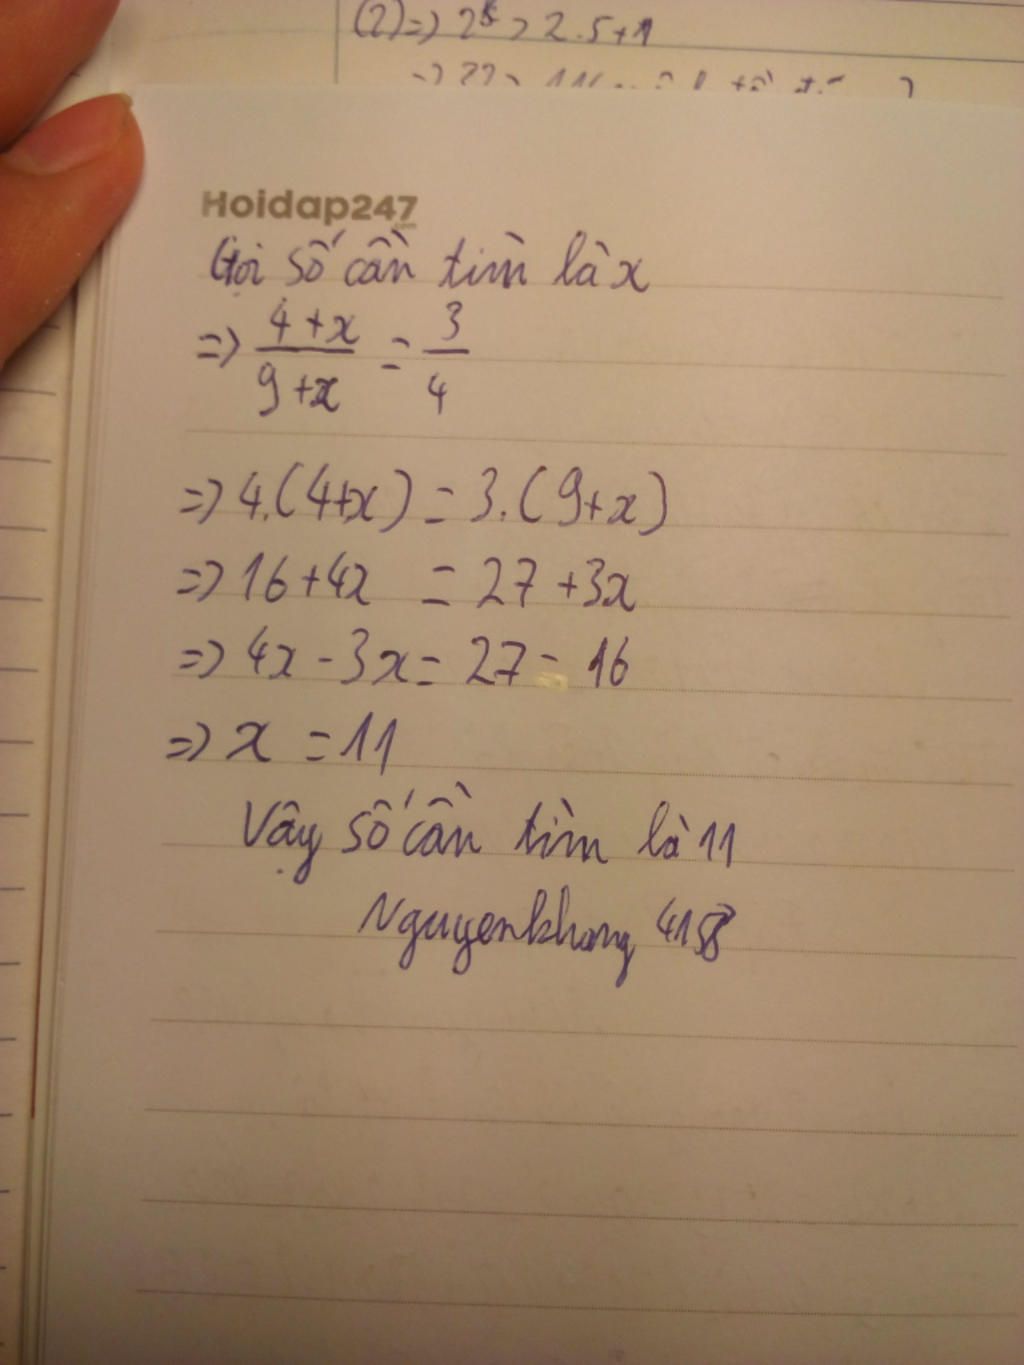 (2) => 2⁵ > 2.5+1
Hoidap247
.com
Gọi số cần tìm là x
=> 4+x / 9+x = 3 / 4
=> 4.(4+x) = 3.(9+x)
=> 16+4x = 27+3x
=> 4x - 3x = 27 - 16
=> x = 11
Vậy số cần tìm là 11
Nguyenkhang